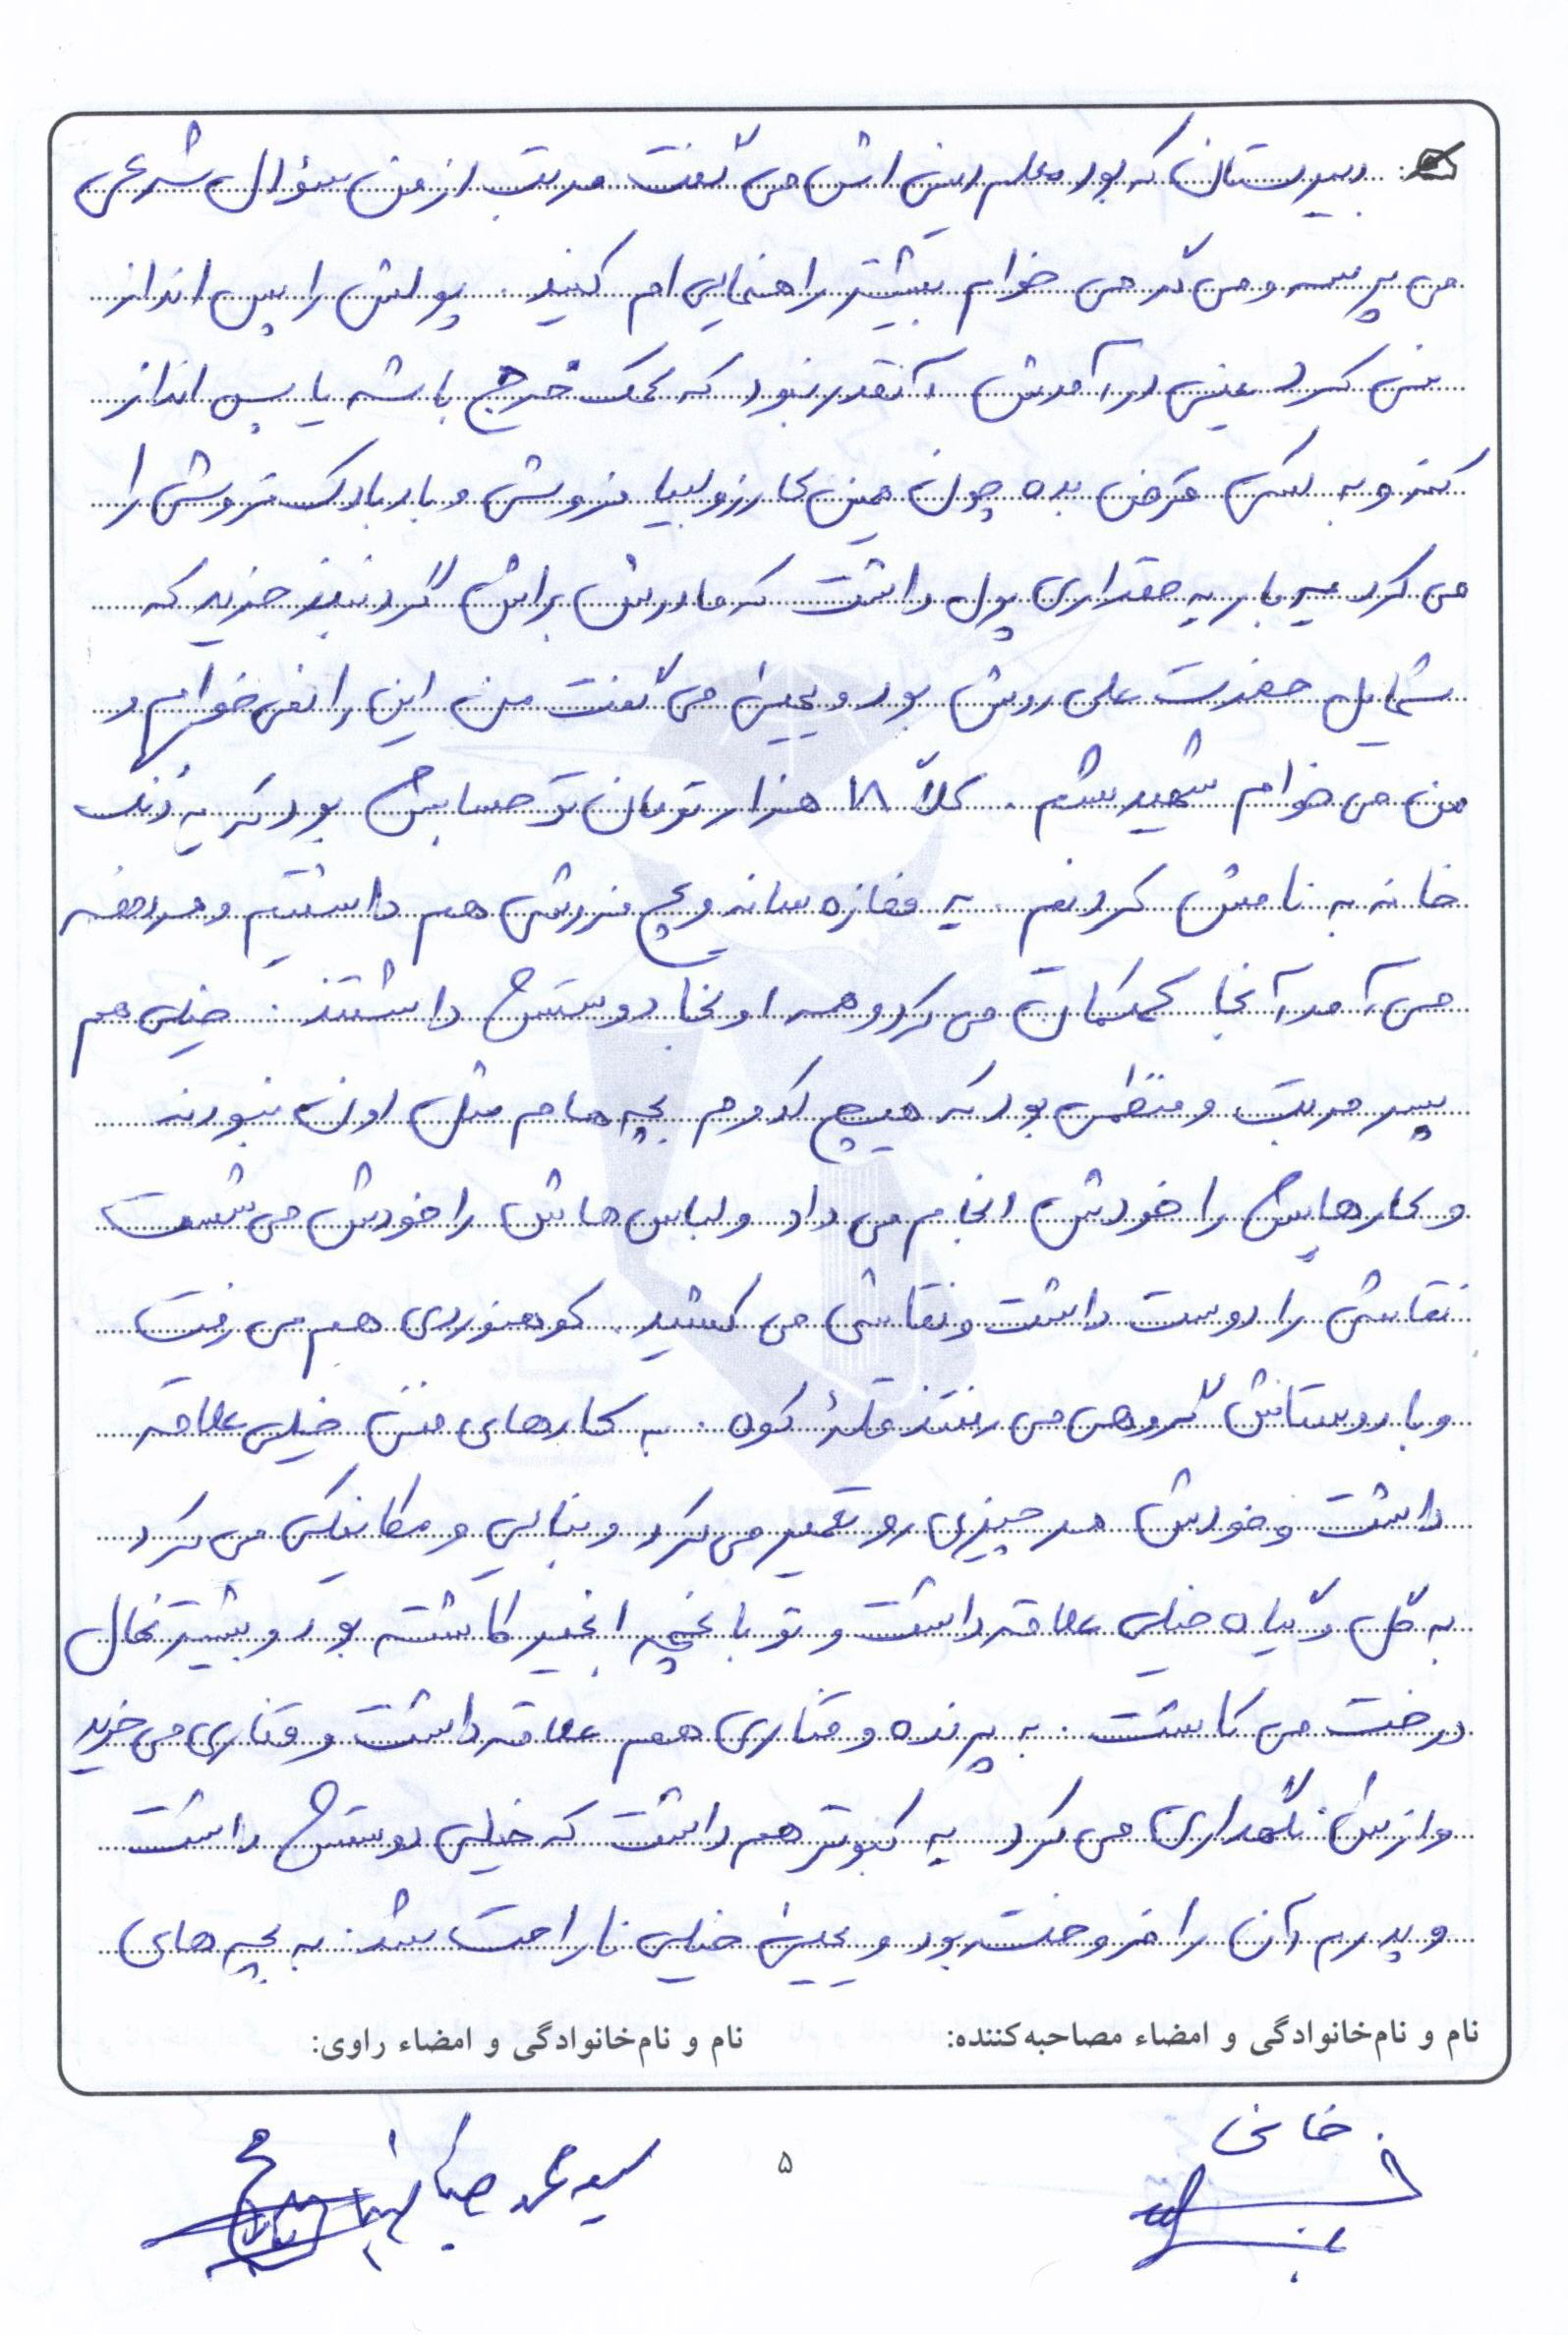 دبیرستان که بود معلم دینی اش می گفت مرتب از من سؤال شرعی
می پرسه و می گه می خوام بیشتر راهنمایی ام کنید. پولش را پس انداز
نمی کرد یعنی درآمدش آنقدر نبود که کمک خرج باشه یا پس انداز
کنه و به کسی قرض بده چون همین کار زولبیا فروشی و بادبادک فروشی را
می کرد یه بار یه مقداری پول داشت که مادرش براش گردنبند خرید که
شمایل حضرت علی روش بود و یحیی می گفت من این را نمی خواهم و
من می خوام شهید بشم. کلاً ۱۸ هزار تومان تو حسابش بود که یه دُنگ
خانه به نامش کردیم. یه مغازه ساندویچ فروشی هم داشتیم و هر دفعه
می آمد آنجا کمکمان می کرد و همه اونجا دوستش داشتند. خیلی هم
پسر مرتب و منظمی بود که هیچ کدوم بچه هام مثل اون نبودند
و کارهایش را خودش انجام می داد و لباس هاش را خودش می شست
نقاشی را دوست داشت و نقاشی می کشید. کوهنوردی هم می رفت
و با دوستانش گروهی می رفتند قلۀ کوه. به کارهای فنی خیلی علاقه
داشت و خودش هر چیزی رو تعمیر می کرد و بنایی و مکانیکی می کرد
به گل و گیاه خیلی علاقه داشت و تو باغچه انجیر کاشته بود و بیشتر نهال
درخت می کاشت. به پرنده و قناری هم علاقه داشت و قناری می خرید
و ازش نگهداری می کرد یه کبوتر هم داشت که خیلی دوستش داشت
و پدرم آن را فروخت بود و یحیی خیلی ناراحت شد. به بچه های
نام و نام‌خانوادگی و امضاء مصاحبه‌کننده: نام و نام‌خانوادگی و امضاء راوی:
خانی سید محمد
۵